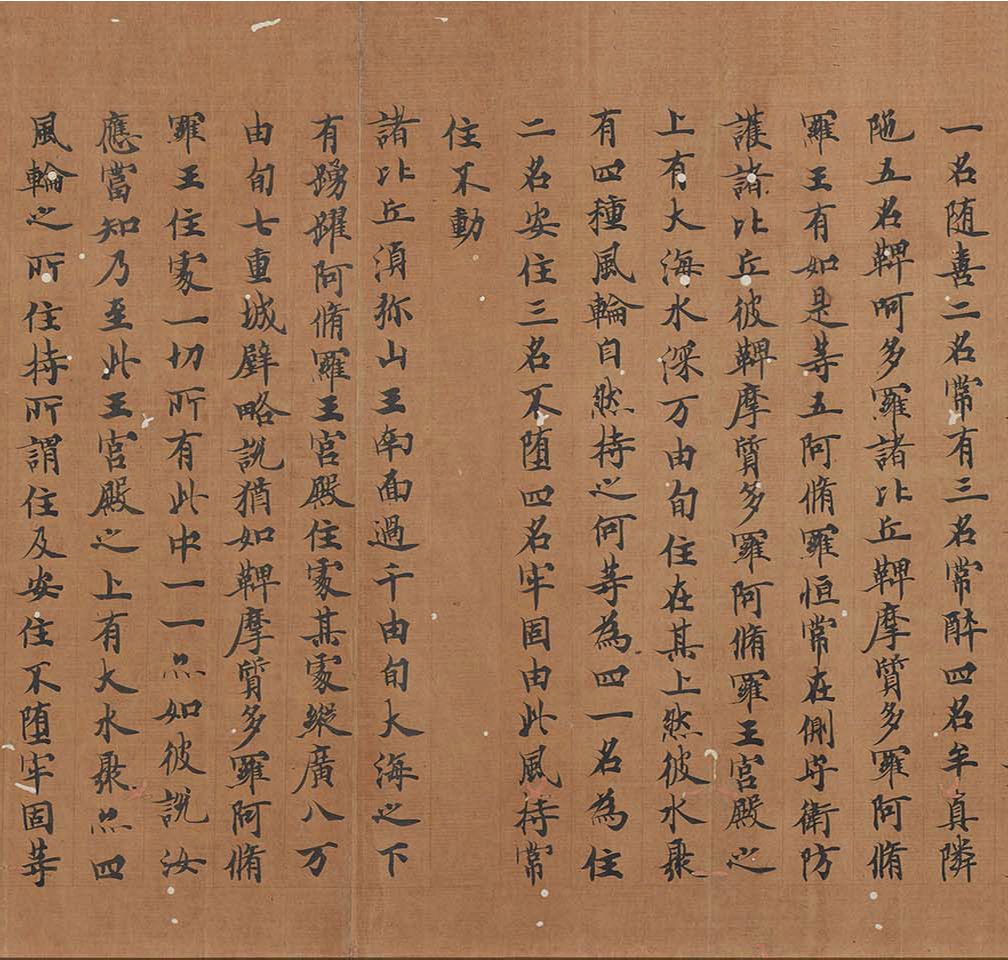 一名随喜二名常有三名常醉四名牟真隣
陁五名鞞呵多羅諸比丘鞞摩質多羅阿脩
羅王有如是等五阿脩羅恒常在側守衛防
護諸比丘彼鞞摩質多羅阿脩羅王宮殿之
上有大海水深万由旬住在其上然彼水聚
有四種風輪自然持之何等為四一名為住
二名安住三名不墮四名牢固由此風持常
住不動
諸比丘湏弥山王南面過千由旬大海之下
有踴躍阿脩羅王宮殿住處其處縱廣八万
由旬七重城壁略說猶如鞞摩質多羅阿脩
羅王住處一切所有此中一一亦如彼說汝
應當知乃至此王宮殿之上有大水聚亦四
風輪之所住持所謂住及安住不墮牢固等